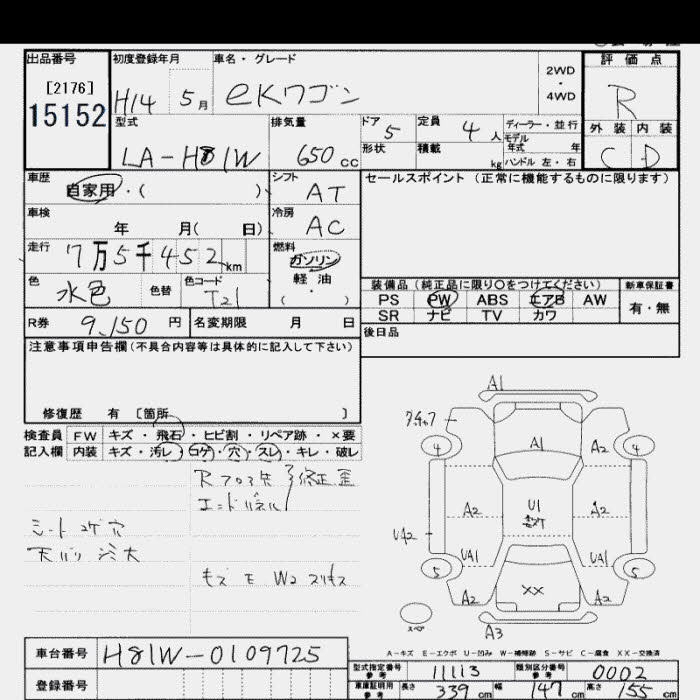 出品番号
[2176]
15152
初度登録年月
H14 5月
車名・グレード
eKワゴン
2WD
・
4WD
評価点
R
型式
LA-H81W
排気量
650cc
ドア
5
形状
定員
4人
積載
kg
ディーラー・並行
モデル
年式 年
ハンドル 左・右
外装 内装
C D
車歴
自家用・( )
シフト
AT
車検
年 月( 日)
冷房
AC
セールスポイント (正常に機能するものに限ります)
走行
7万5千452km
燃料
ガソリン
軽油
( ・ )
色
水色
色替
色コード
T21
装備品(純正品に限り○をつけてください)
PS PW ABS エアB AW
SR ナビ TV カワ
新車保証書
有・無
R券 9,150円
名変期限 月 日
後日品
注意事項申告欄(不具合内容等は具体的に記入して下さい)
修復歴 有 [箇所 ]
検査員 FW キズ・飛石・ヒビ割・リペア跡・×要
記入欄 内装 キズ・汚レ・コゲ・穴・スレ・キレ・破レ
Rフロア先 修正歪
エンドパネル
シート コゲ穴
天バリ
モズ モ W2
A1
4
A1
A2
4
A2
U1
A2
UA2
UA1
UA1
5
5
A2
XX
A2
スペア
A3
A-キズ E-エクボ U-凹み W-補修跡 S-サビ C-腐食 XX-交換済
車台番号 H81W-0109725
登録番号
型式指定番号
参考
11113
類別区分番号
参考
0002
車庫証明用
参考
長さ 339cm 幅 147cm 高さ 155cm